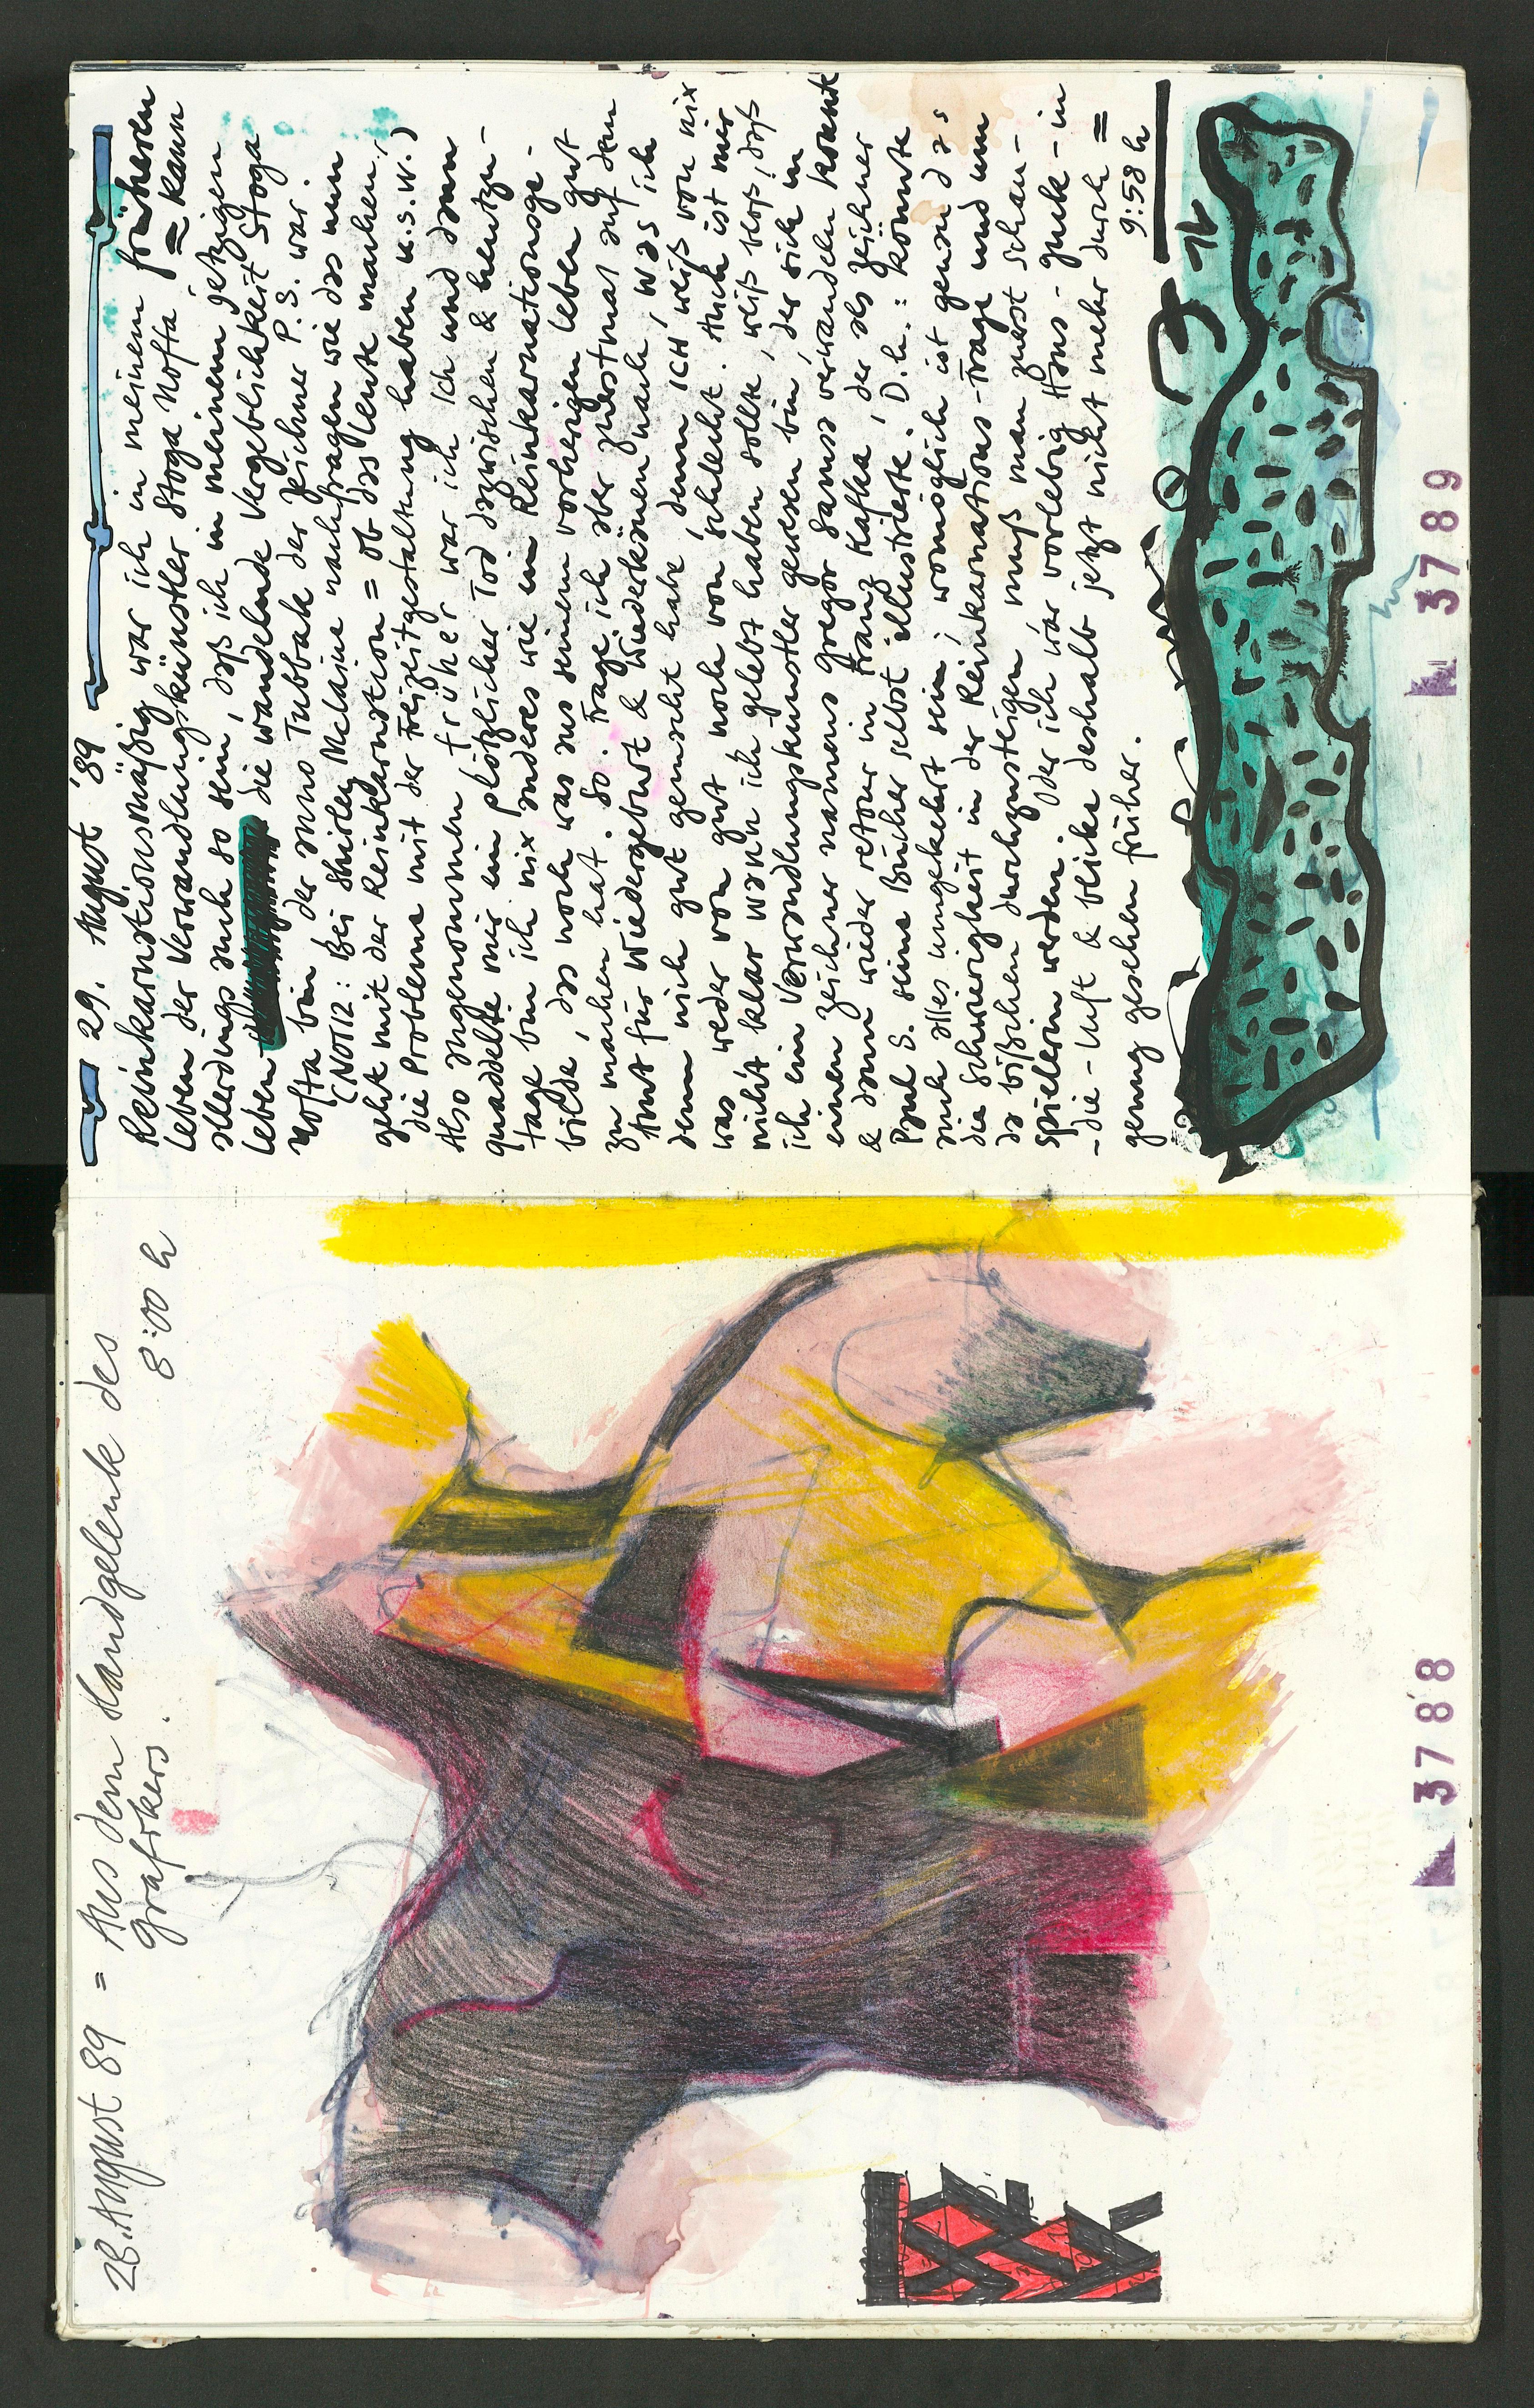 28. August 89 = Aus dem Handgelenk des
Grafikers.
8:00 h
3788
29. August '89
Reinkarnationsmäßig war ich in meinem früheren
Leben der Verwandlungskünstler Stoga Nofta, = kann
allerdings auch so sein, daß ich in meinem jetzigen
Leben die wandelnde Vergeblichkeit Stoga
Nofta bin, der anno Tubbak der Zeichner P.S. war.
(Notiz: Bei Shirley McLaine nachfragen wie das nun
geht mit der Reinkarnation = ob das Leute machen,
die Probleme mit der Freizeitgestaltung haben u.s.w.)
Also angenommen früher war ich Ich und dann
quaddelte mir ein plötzlicher Tod dazwischen & heutzu-
tage bin ich nix anderes wie ein Reinkarnationsge-
bilde, das noch was aus seinem vorherigen Leben gut
zu machen hat. So. Frage ich aber zuerstmal auf dem
Amt für Wiedergeburt & Wiederkäuen nach, was ich
denn nich gut gemacht habe, denn ICH weiß von nix
was weder von gut noch von schlecht. Auch ist mir
nicht klar wann ich gelebt haben sollte, weiß bloß, daß
ich ein Verwandlungskünstler gewesen bin, der sich in
einen Zeichner namens Gregor Samsa verwandeln konnte
& dann wieder retour in Franz Kafka, der als Zeichner
Paul S. seine Bücher selbst illustrierte. D.h.: könnte
auch alles umgekehrt sein, womöglich ist genau das
die Schwierigkeit in der Reinkarnations-Frage und um
da bißchen durchzusteigen muß man zuerst Schau-
spielerin werden. Oder ich war vorlebig Hans-guck-in
-die-Luft & blicke deshalb jetzt nicht mehr durch =
genug gesehen früher.
9:58 h
3789